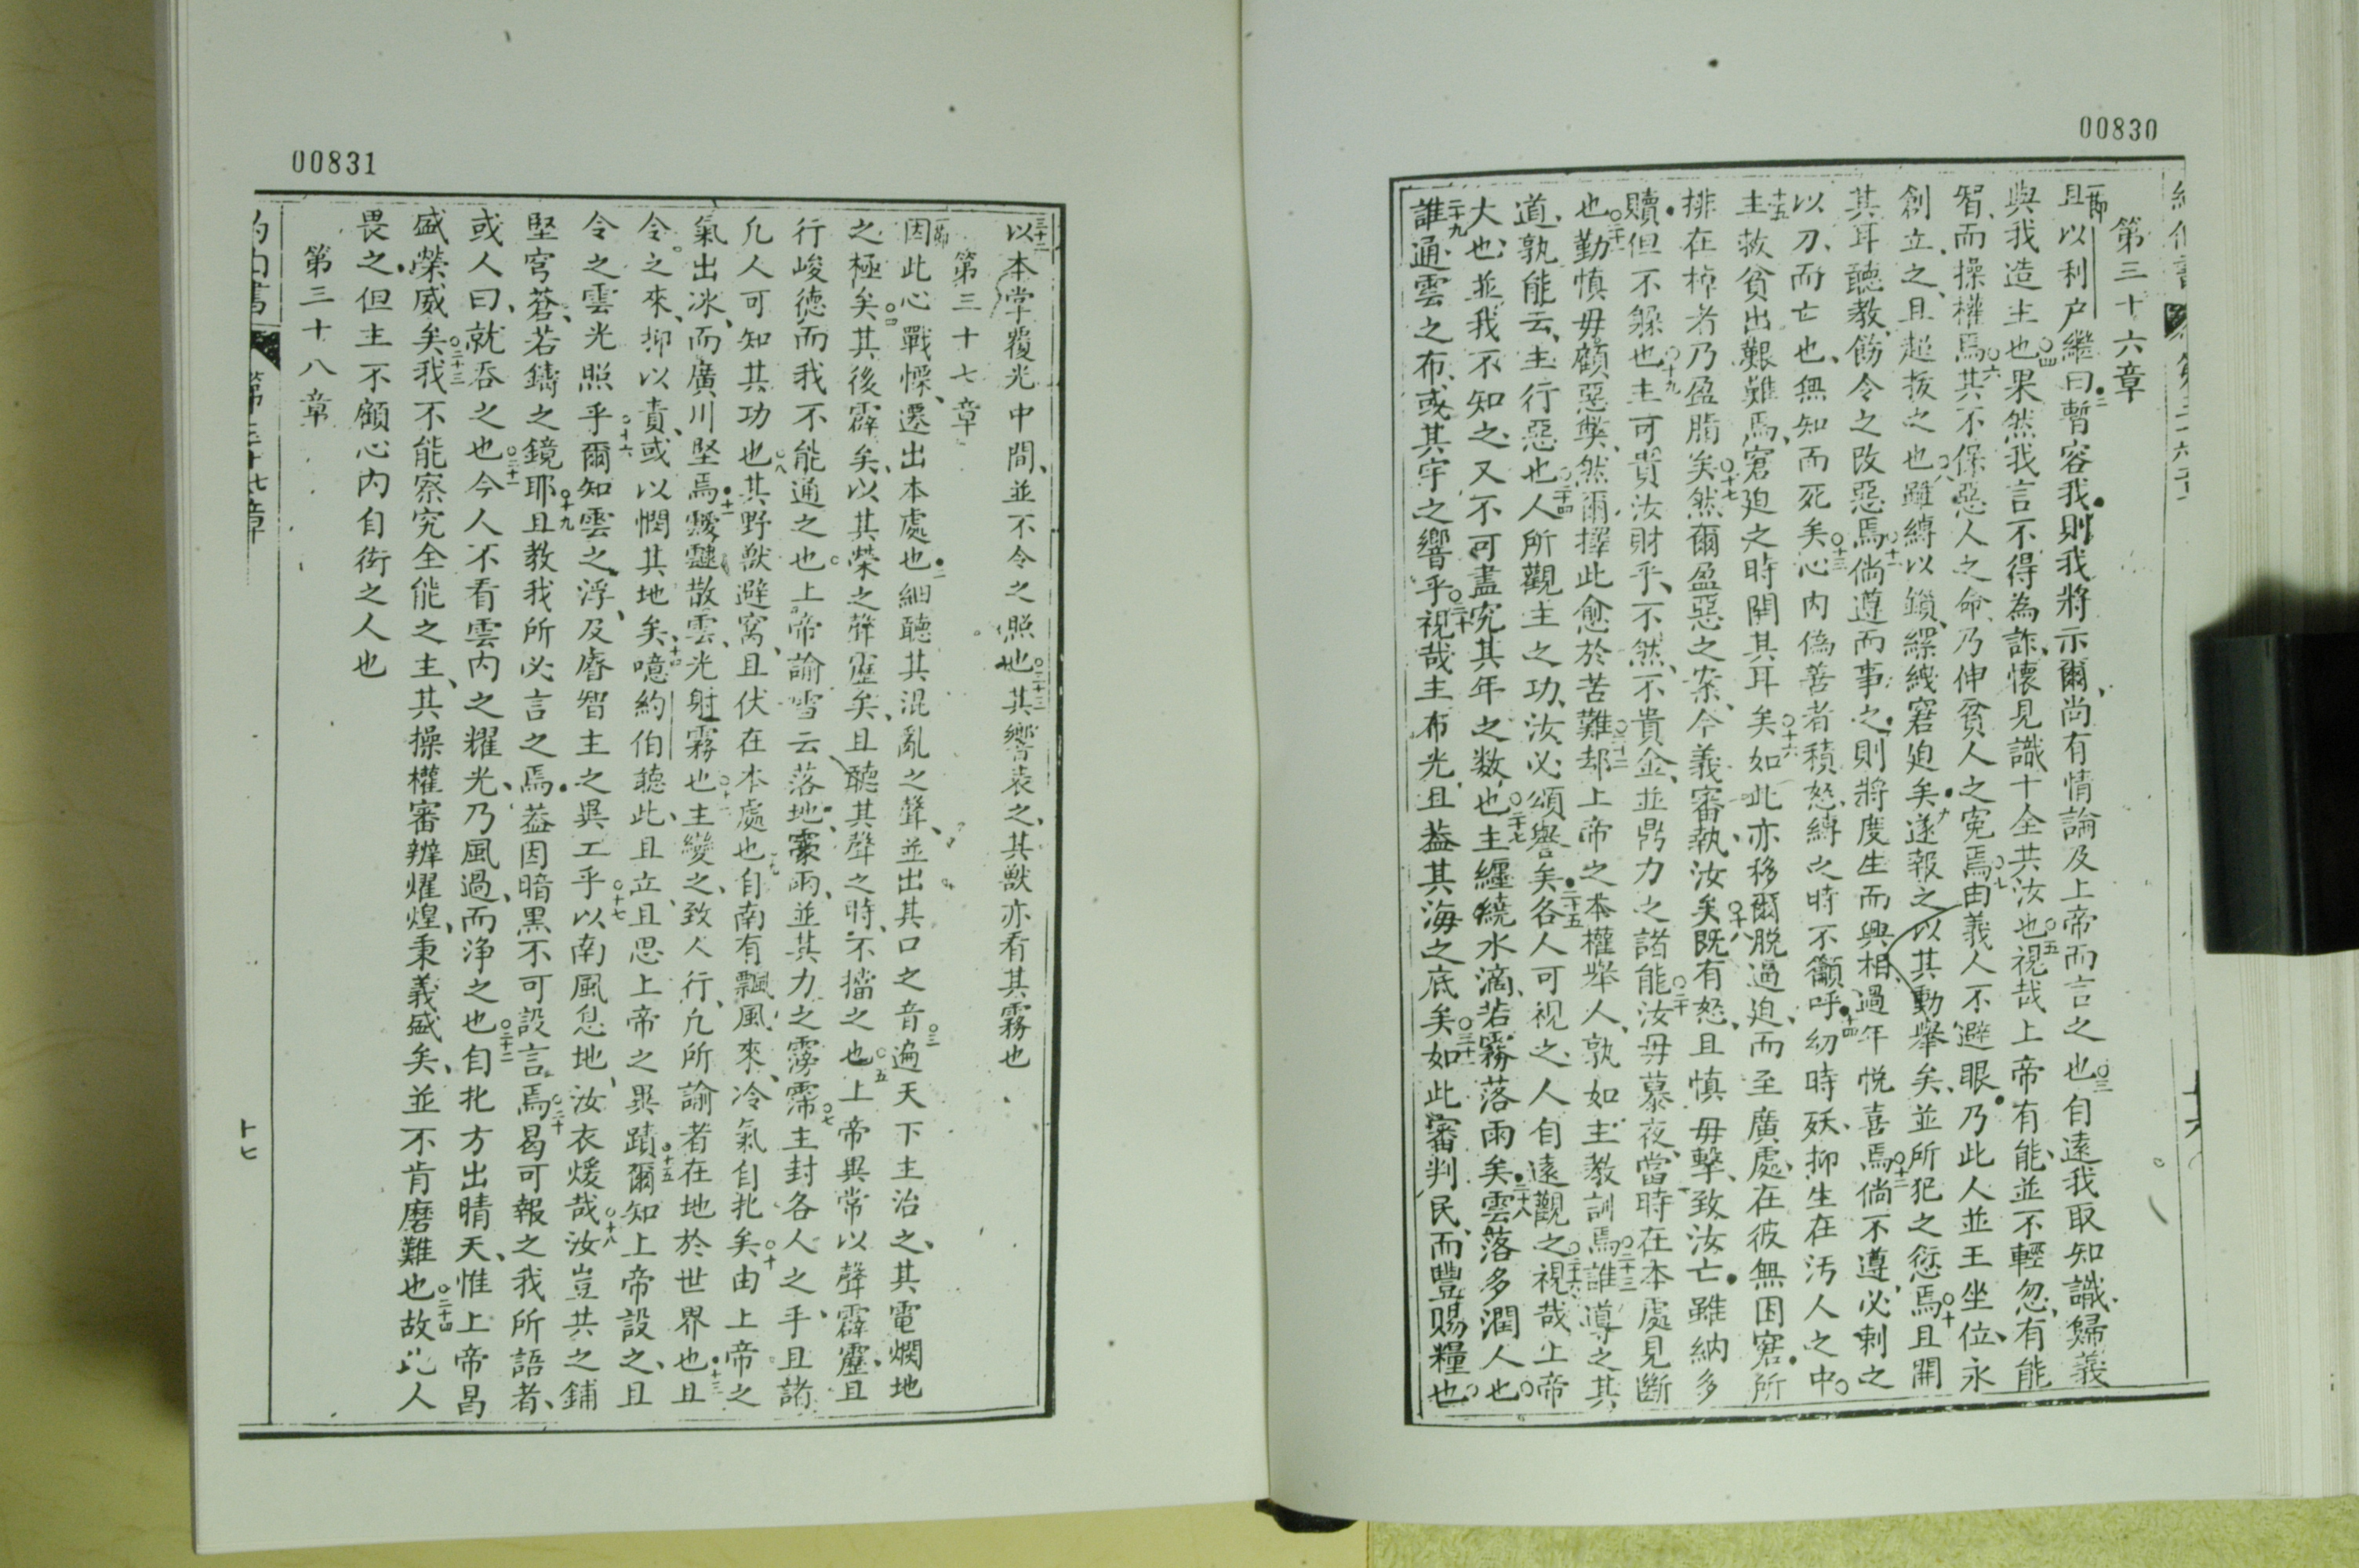 00830
第三十六章
一節
且以利户繼曰二暫容我則我將示爾尚有情論及上帝而言之也三自遠我取知識歸義
與我造主也四果然我言不得為詐懷見識十全共汝也五視哉上帝有能並不輕忽有能
智而操權焉六其不保惡人之命乃伸貧人之寃焉七由義人不避眼乃此人並王坐位永
創立之且超拔之也八雖縛以鎖縲絏窘迫矣九遂報之以其動舉矣並所犯之愆焉十且開
其耳聽教飭令之改惡焉十一倘遵而事之則將度生而興相過年悅喜焉十二倘不遵必剌之
以刀而亡也無知而死矣十三心内偽善者積怒縛之時不籲呼十四幼時殀抑生在汚人之中
十五主救貧出艱難焉窘迫之時開其耳矣十六如此亦移爾脱過迫而至廣處在彼無困窘所
排在棹者乃盈脂矣十七然爾盈惡之案今義審執汝矣十八既有怒且慎毋擊致汝亡雖納多
贖但不躱也十九主可貴汝財乎不然不貴金並鼎力之諸能二十汝毋慕夜當時在本處見斷
也二十一勤慎毋顧惡弊然爾擇此愈於苦難二十二却上帝之本權舉人孰如主教訓焉二十三誰導之其
道孰能云主行惡也二十四人所觀主之功汝必頌譽矣二十五各人可視之人自遠觀之二十六視哉上帝
大也並我不知之又不可盡究其年之数也二十七主纒繞水滴若霧落雨矣二十八雲落多潤人也
二十九誰通雲之布或其宇之響乎三十視哉主布光且葢其海之底矣三十一如此審判民而豐賜糧也
00831
三十二以本掌覆光中間並不令之照也三十三其響表之其獸亦看其霧也
第三十七章
一節因此心戰慄遷出本處也二細聽其混亂之聲並出其口之音三遍天下主治之其電爛地
之極矣四其後霹矣以其榮之聲靂矣且聽其聲之時不擋之也五上帝異常以聲霹靂且
行峻德而我不能通之也六上帝諭雪云落地霡雨並其力之霶霈七主封各人之手且諸
凡人可知其功也八其野獸避窩且伏在本處也九自南有飄風來冷氣自北矣十由上帝之
氣出冰而廣川堅焉十一靉靆散雲光射霧也十二主變之致人行凡所諭者在地於世界也十三且
令之來抑以責或以憫其地矣十四噫約伯聽此且立且思上帝之異蹟十五爾知上帝設之且
令之雲光照乎十六爾知雲之浮及睿智主之異工乎十七以南風息地汝衣煖哉十八汝豈共之鋪
堅穹蒼若鑄之鏡耶十九且教我所必言之焉葢因暗黑不可設言焉二十曷可報之我所語者
或人曰就吞之也二十一今人不看雲内之耀光乃風過而浄之也二十二自北方出晴天惟上帝昌
盛榮威矣二十三我不能察究全能之主其操權審辦燿煌秉義盛矣並不肯磨難也二十四故此人
畏之但主不顧心内自衒之人也
第三十八章
約百書
第三十七章
十七